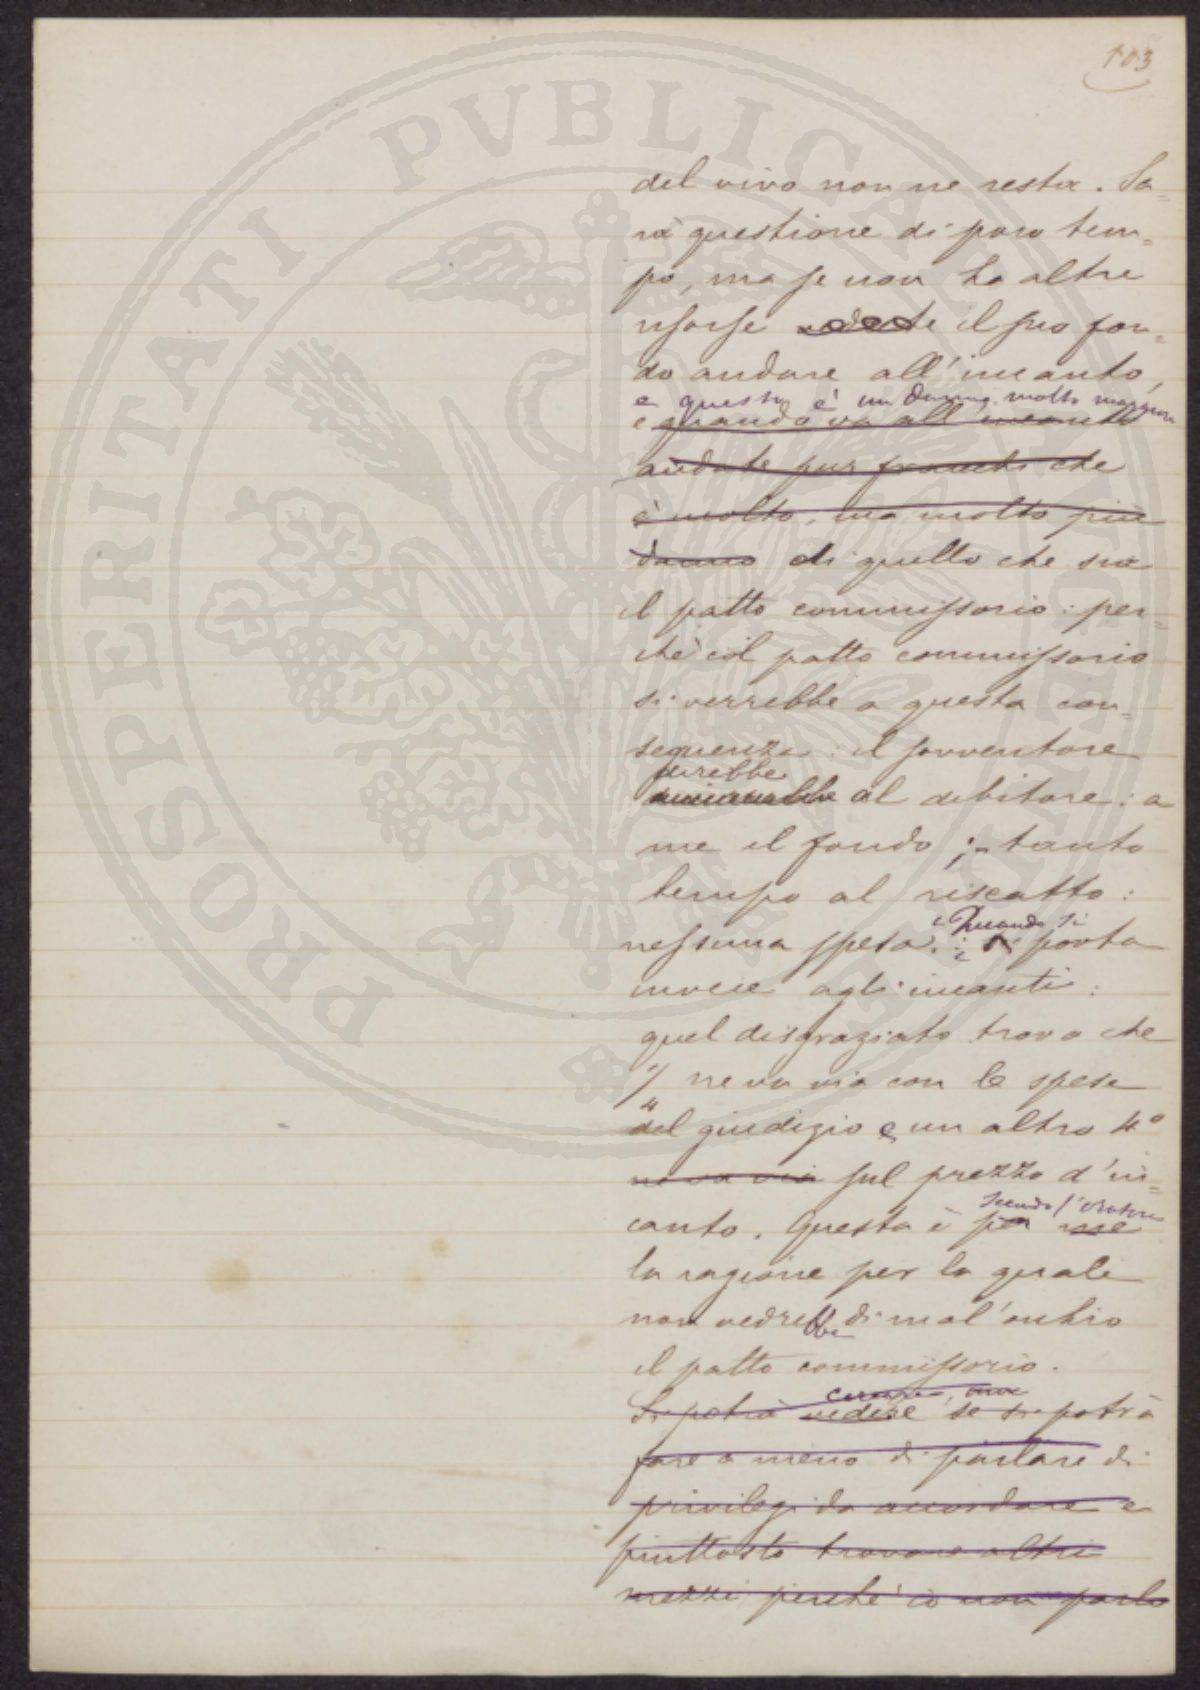 103
del vivo non ne resta. Sa=
rà questione di poco tem=
po, ma se non ha altre
risorse vedete il suo fon=
do andare all'incanto,
e questo è un danno molto maggiore
e quando va all'incanto
andate pur franchi che
è molto, ma molto più
danno di quello che sia
il patto commissorio: per=
chè col patto commissorio
si verrebbe a questa con=
seguenza: il sovventore
direbbe
al debitore: a
me il fondo; tanto
tempo al riscatto:
e Quando si
nessuna spesa: porta
invece agli incanti:
quel disgraziato trova che
1/4 ne va via con le spese
del giudizio e un altro 4º
ne va via sul prezzo d'in=
secondo l'oratore
canto. Questa è per me
la ragione per la quale
non vedrebbe di mal'occhio
il patto commissorio.
Si potrà vedere se si potrà
fare a meno di parlare di
privilegi da accordare e
piuttosto trovare altri
mezzi perchè io non parlo
PROSPERITATI PVBLICAE